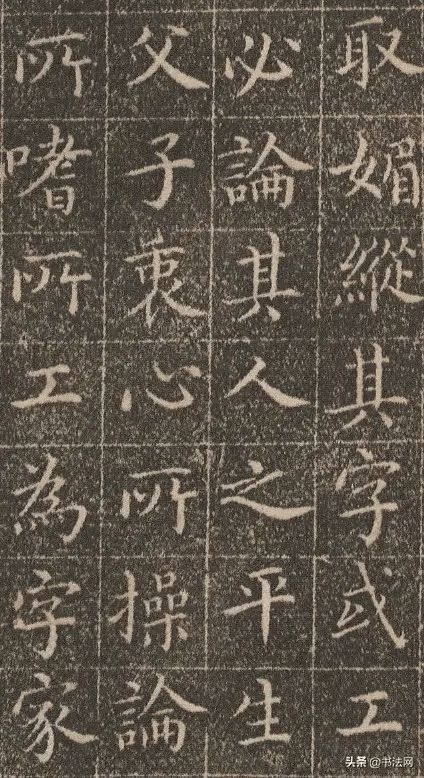 取媚縱其字或工
必論其人之平生
父子衷心所操論
所嗜所工為字家
头条@书法网